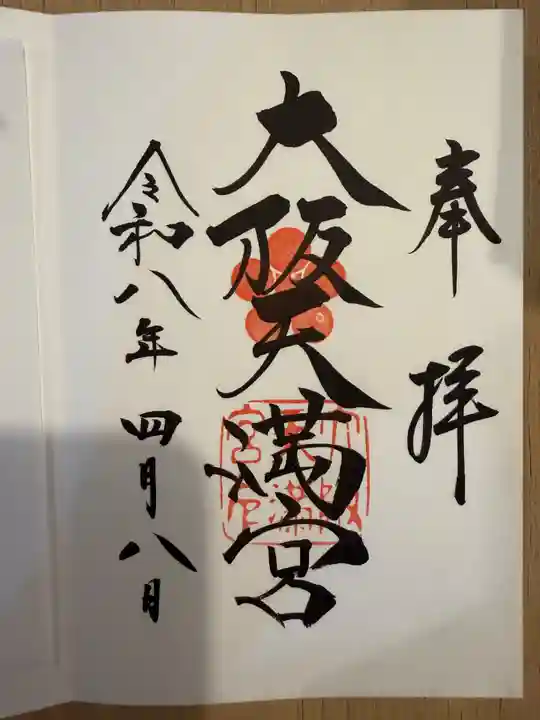 奉拝
大阪天満宮
令和八年四月八日